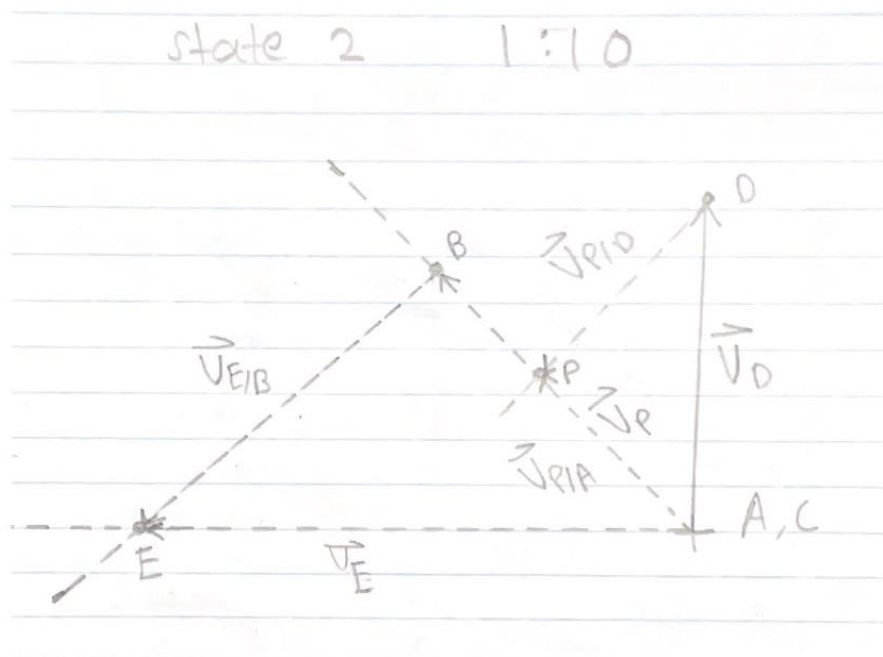 state 2 1:10
D
B
V⃗P/D
V⃗E/B
P
V⃗D
V⃗P
V⃗P/A
A, C
E
V⃗E